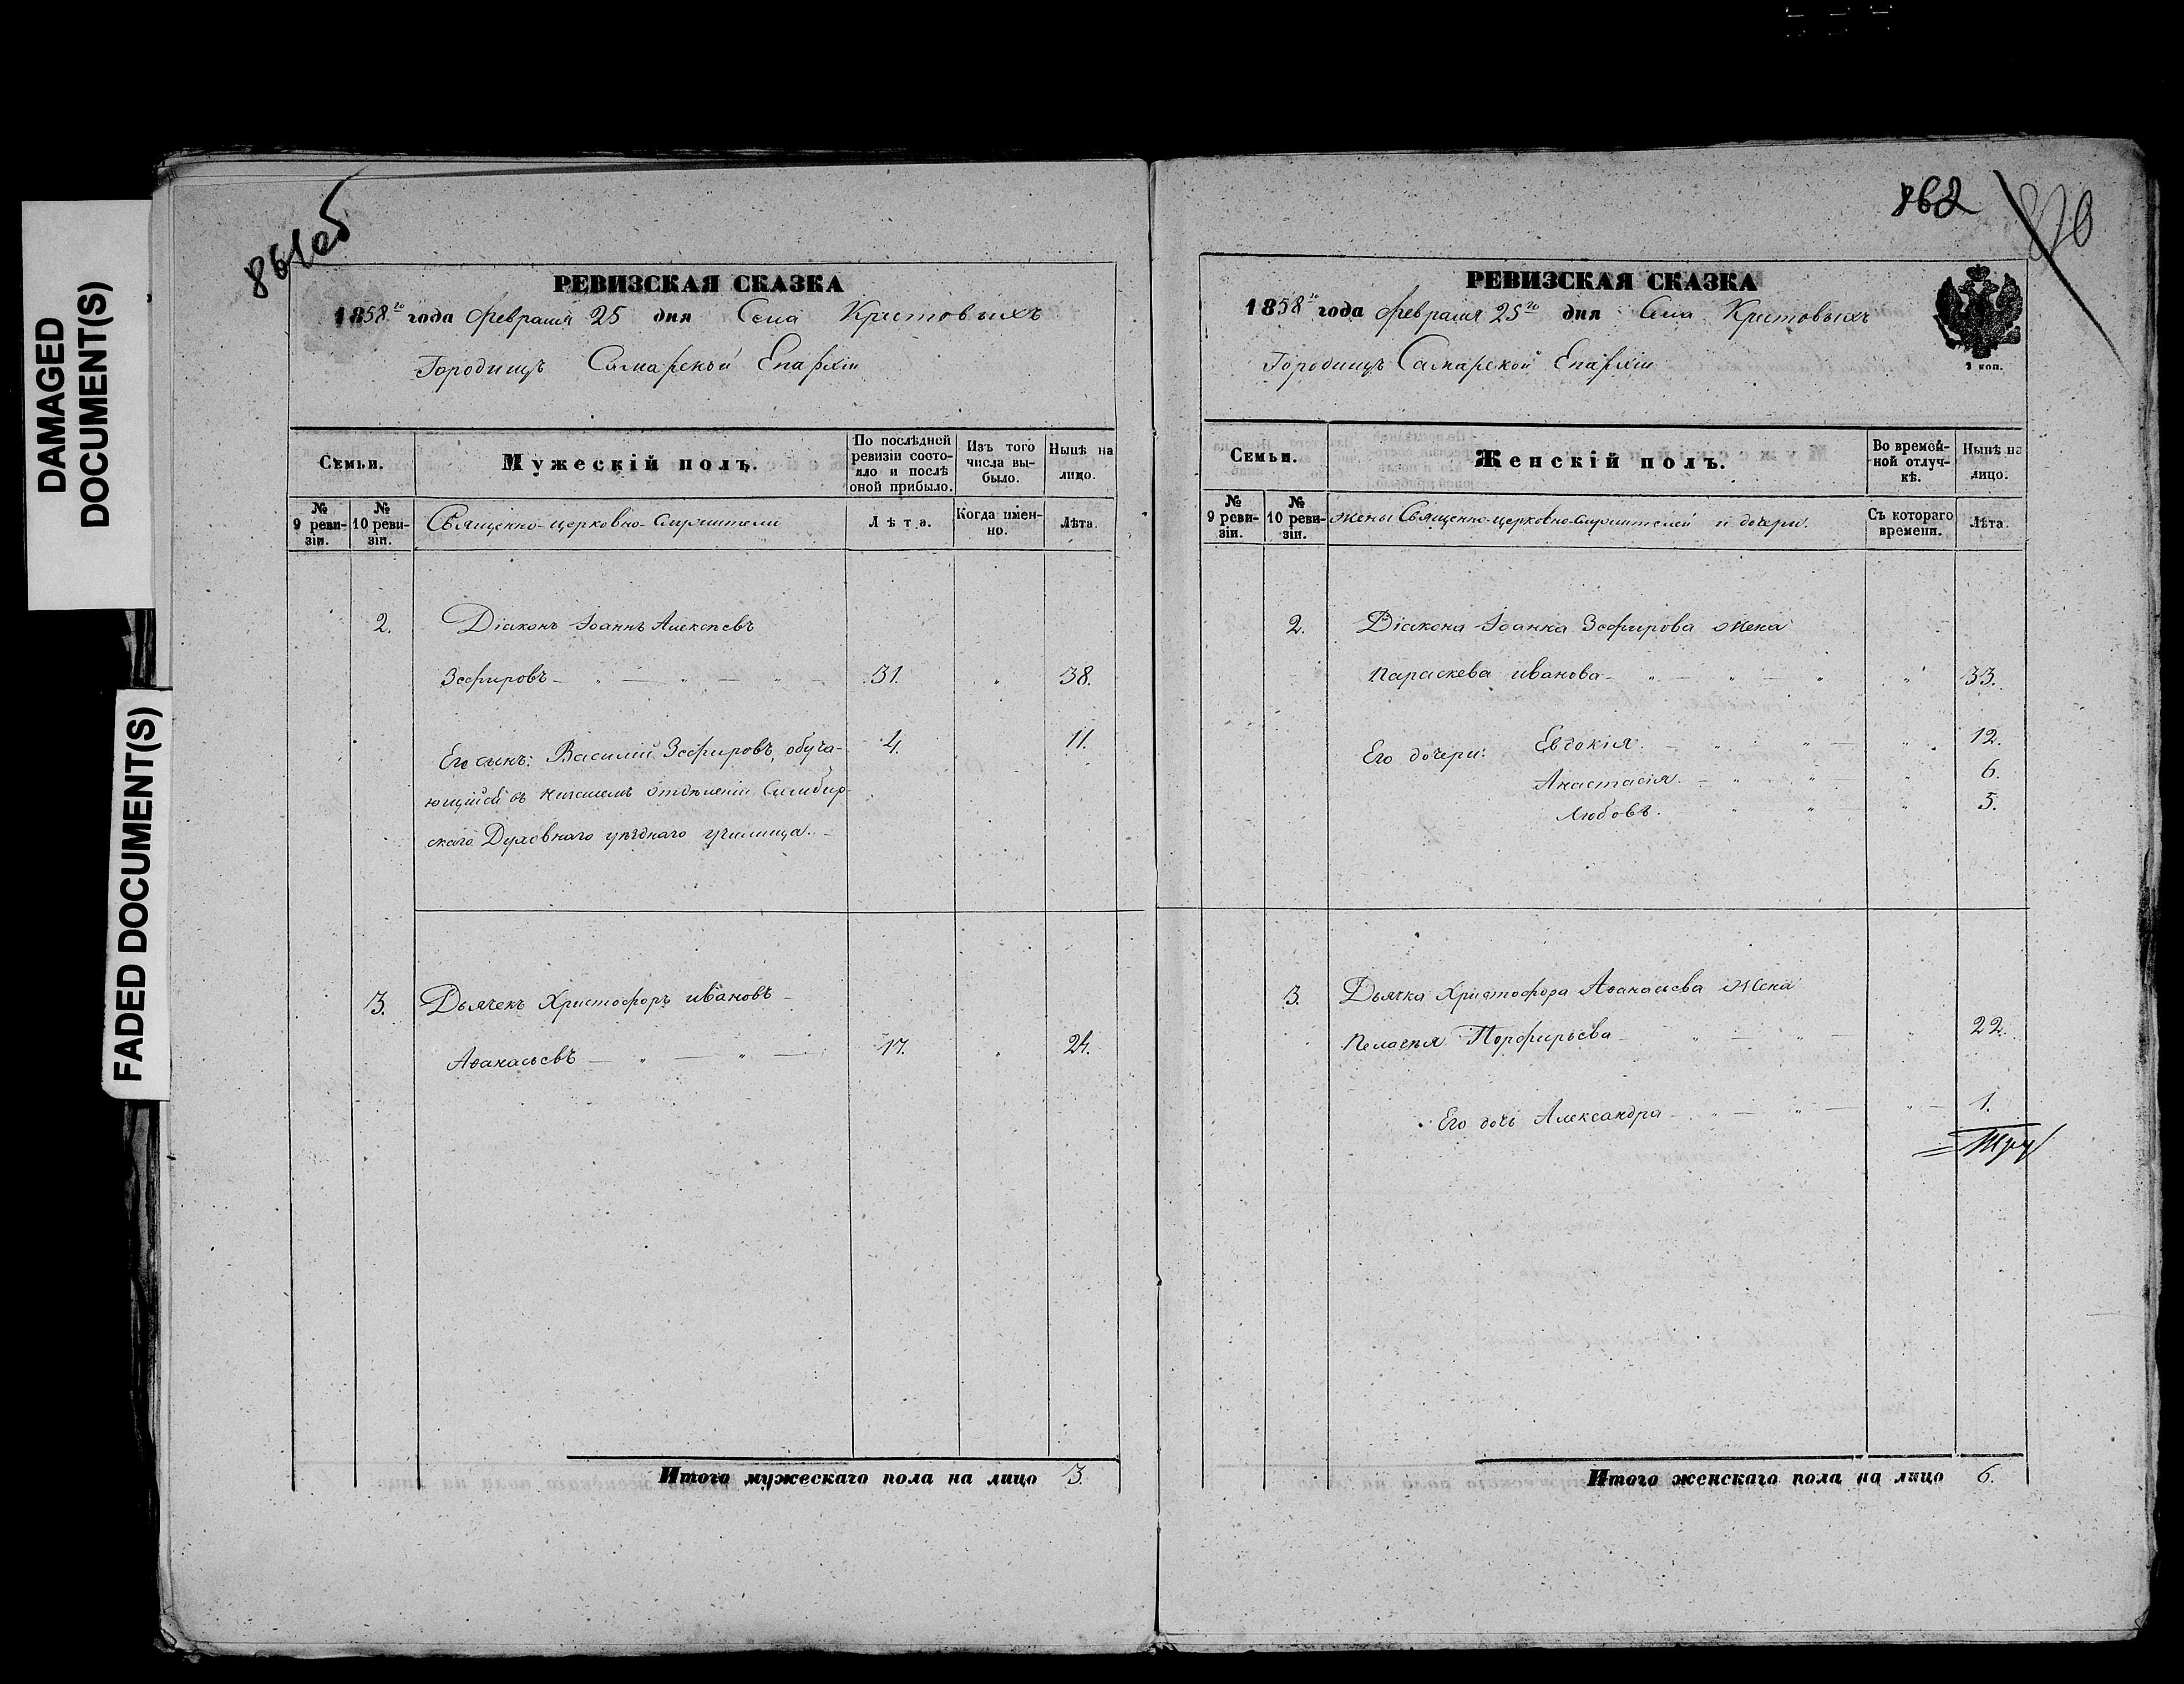 DAMAGED
DOCUMENT(S)
FADED DOCUMENT(S)
861об
РЕВИЗСКАЯ СКАЗКА
1858го года Февраля 25 дня Села Крестовыхъ
Городищъ Самарской Епархіи
Семьи.
Мужескій полъ.
По послѣдней ревизіи состояло и послѣ оной прибыло.
Изъ того числа выбыло.
Нынѣ на лицо.
№ 9 ревизіи.
№ 10 ревизіи.
Священно-церковно-служители
Лѣта.
Когда именно.
Лѣта.
2. Діаконъ Іоаннъ Алексѣевъ
Зефировъ — " — " — " — 31. " 38.
Его сынъ: Василій Зефировъ, обуча- 4. 11.
ющійся въ низшемъ отдѣленіи Симбир-
скаго Духовнаго уѣзднаго училища. —
3. Дьячекъ Христофоръ ивановъ —
Аѳанасьевъ — " — " — 17. " 24.
Итого мужескаго пола на лицо 3.
862
РЕВИЗСКАЯ СКАЗКА
1858го года Февраля 25го дня Села Крестовыхъ
Городищъ Самарской Епархіи
2 коп.
Семьи.
Женскій полъ.
Во временной отлучкѣ.
Нынѣ на лицо.
№ 9 ревизіи.
№ 10 ревизіи.
жены Священно-церковно-служителей и дочери.
Съ котораго времени.
Лѣта.
2. Діакона Іоанна Зефирова жена
Параскева иванова — " — " — " " 33.
Его дочери: Евдокія. — " " — " 12.
Анастасія. — " " — " 6.
Любовь. " " — " 5.
3. Дьячка Христофора Аѳанасьева жена
Пелагѣя Порфирьева — " — " — " 22.
Его дочь Александра — " — " — " — 1.
Итого женскаго пола на лицо 6.